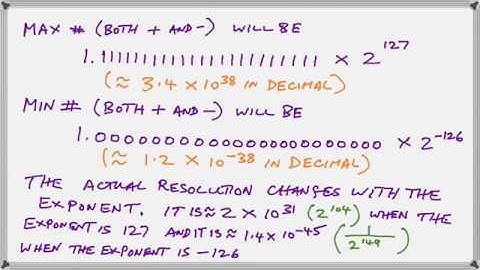 MAX # (BOTH + AND -) WILL BE
1.11111111111111111111111 × 2^127
(≈ 3.4 × 10^38 IN DECIMAL)
MIN # (BOTH + AND -) WILL BE
1.00000000000000000000000 × 2^-126
(≈ 1.2 × 10^-38 IN DECIMAL)
THE ACTUAL RESOLUTION CHANGES WITH THE
EXPONENT. IT IS ≈ 2 × 10^31 (2^104) WHEN THE
EXPONENT IS 127 AND IT IS ≈ 1.4 × 10^-45 (1/2^149)
WHEN THE EXPONENT IS -126